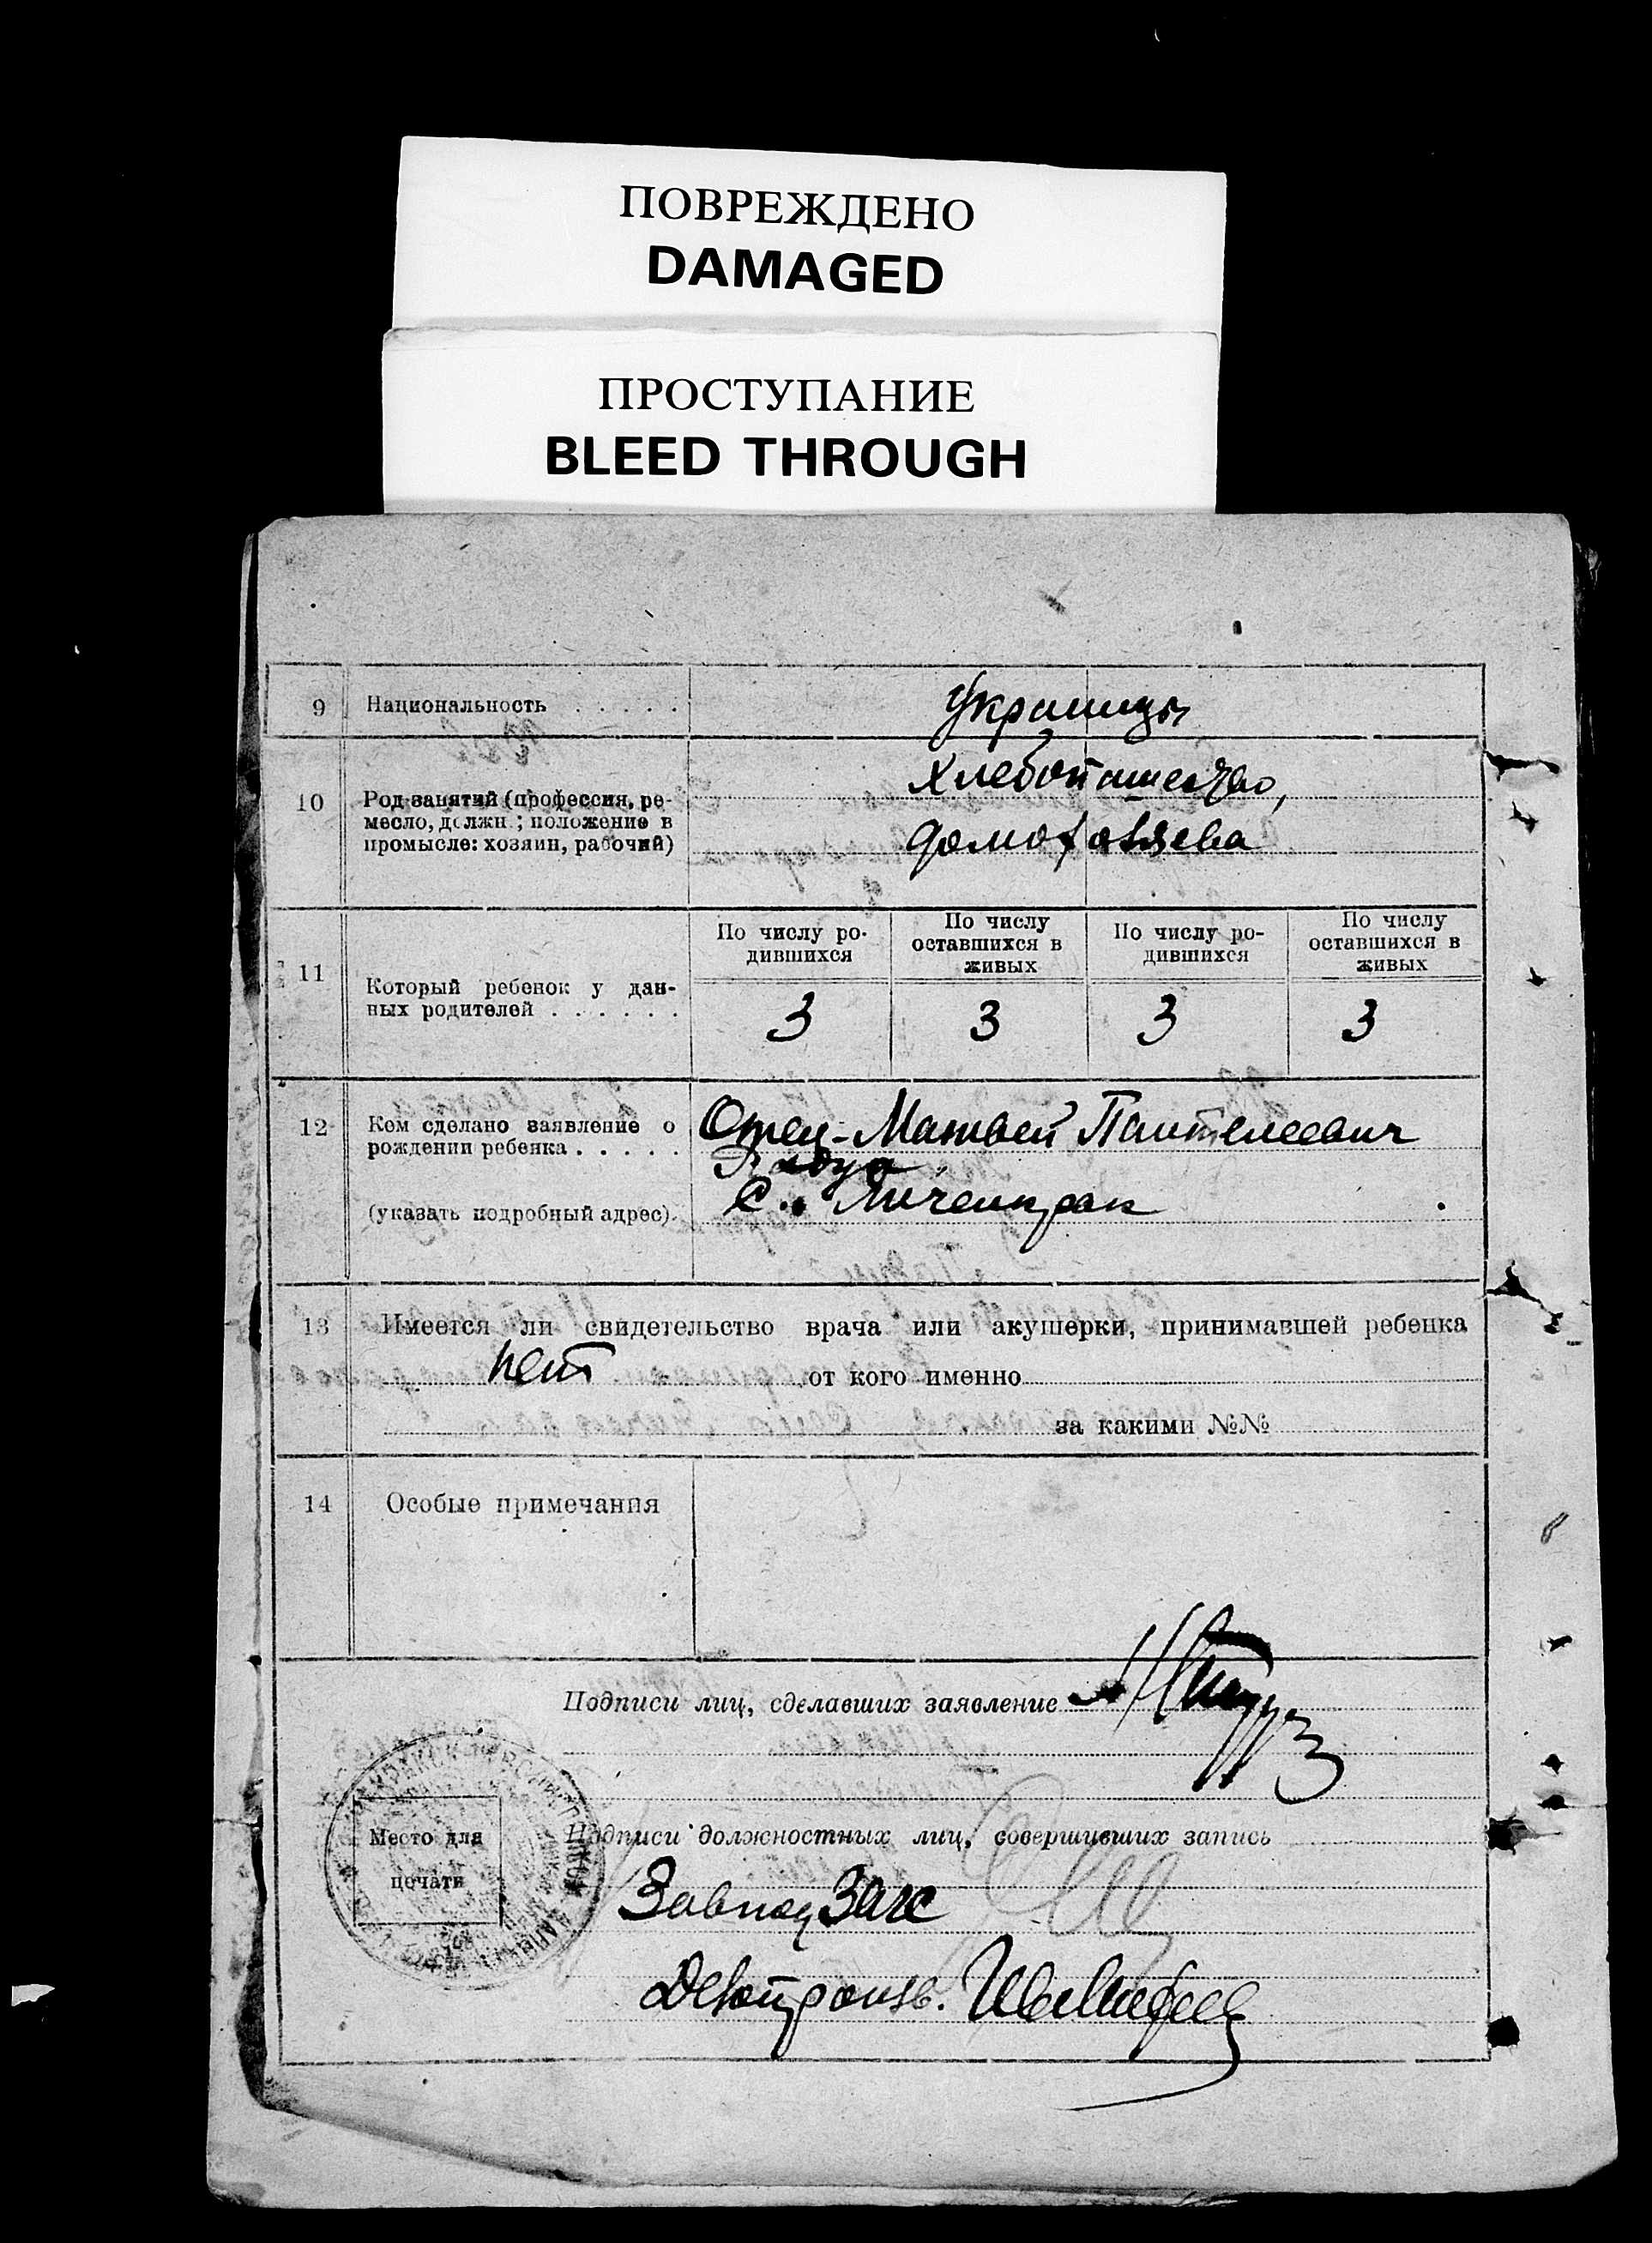 ПОВРЕЖДЕНО
DAMAGED
ПРОСТУПАНИЕ
BLEED THROUGH
9 Национальность . . . . . Украинцы
Хлебопашество,
10 Род занятий (профессия, ре-
месло, должн.; положение в
промысле: хозяин, рабочий)
домохозяева
11 Который ребенок у дан-
ных родителей . . . . . .
По числу ро-
дившихся
По числу
оставшихся в
живых
По числу ро-
дившихся
По числу
оставшихся в
живых
3 3 3 3
12 Кем сделано заявление о
рождении ребенка . . . . .
(указать подробный адрес).
Отец - Матвей Пантелеевич
С.
13 Имеется ли свидетельство врача или акушерки, принимавшей ребенка
нет от кого именно
за какими №№
14 Особые примечания
Подписи лиц, сделавших заявление
Место для
печати
Подписи должностных лиц, совершивших запись
Завпод Загс